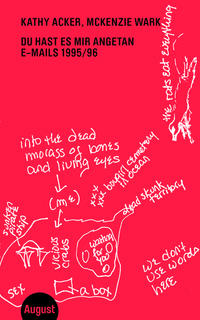 KATHY ACKER, MCKENZIE WARK
DU HAST ES MIR ANGETAN
E-MAILS 1995/96
the rats eat everything
into the dead
morass of bones
and living eyes
(me)
xxx begin cemetery
xxx in ocean
dead skunk
territory
sunken
pirate
ship
vicious
crabs
waiting
for
you
we don't
use words
here
SEX
a box
August